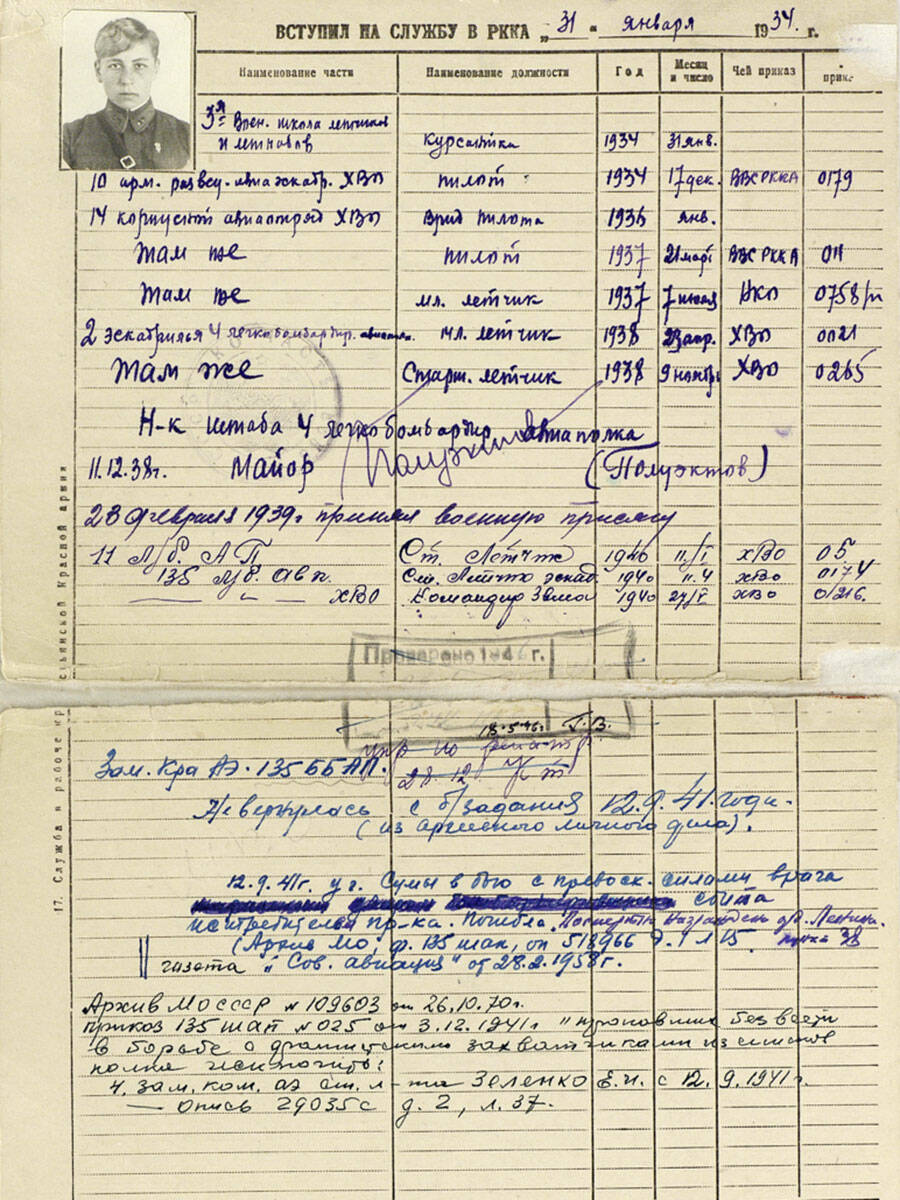 ВСТУПИЛ НА СЛУЖБУ В РККА „31" января 1934 г.
Наименование части Наименование должности Год Месяц и число Чей приказ № прика
3я Воен. школа летчиков
и летнабов курсантка 1934 31 янв.
10 арм. развед. авиаэскадр. ХВО пилот 1934 17 дек. ВВС РККА 0179
14 корпусной авиаотряд ХВО Врид пилота 1936 янв.
Там же пилот 1937 21 март ВВС РККА 011
Там же мл. летчик 1937 7 июля НКО 0758/п
2 эскадрилья 4 легкобомбардир. авиапол. мл. летчик 1938 23 апр. ХВО 0021
Там же Старш. летчик 1938 9 ноября ХВО 0265
Н-к штаба 4 легкобомбардир авиаполка
11.12.38г. Майор (Полуэктов)
23 февраля 1939г приняла военную присягу
11 л/б. АП Ст. Летчик 1940 11/I ХВО 05
135 л/б. авп. Ст. Летчик эскад 1940 11.4 ХВО 0174
— „ — ХВО Командир Звена 1940 27/V ХВО 0/216.
Проверено 194 г.
18.5.46. Г.В.
Зам. Кра АЭ. 135 ББАП. 28.12
Не вернулась с б/задания 12.9.41. года.
(из архивного личного дела).
12.9.41г. у г. Сумы в бою с превосх. силами врага
сбита
истребителем пр-ка. Погибла.
(Архив МО, ф. 135 шап, оп 518966 д. 1 л 15.
газета "Сов. авиация" от 28.2.1958г.
Архив МО СССР № 109603 от 26.10.70г.
приказ 135 шап № 025 от 3.12.1941г "пропавших без вести
в борьбе с фашистскими захватчиками из списков
полка исключить:
4. зам. ком. аэ ст. л-та Зеленко Е.И. с 12.9.1941г.
— опись 29035с д. 2, л. 37.
17. Служба в рабоче-кр
стьянской Красной армии